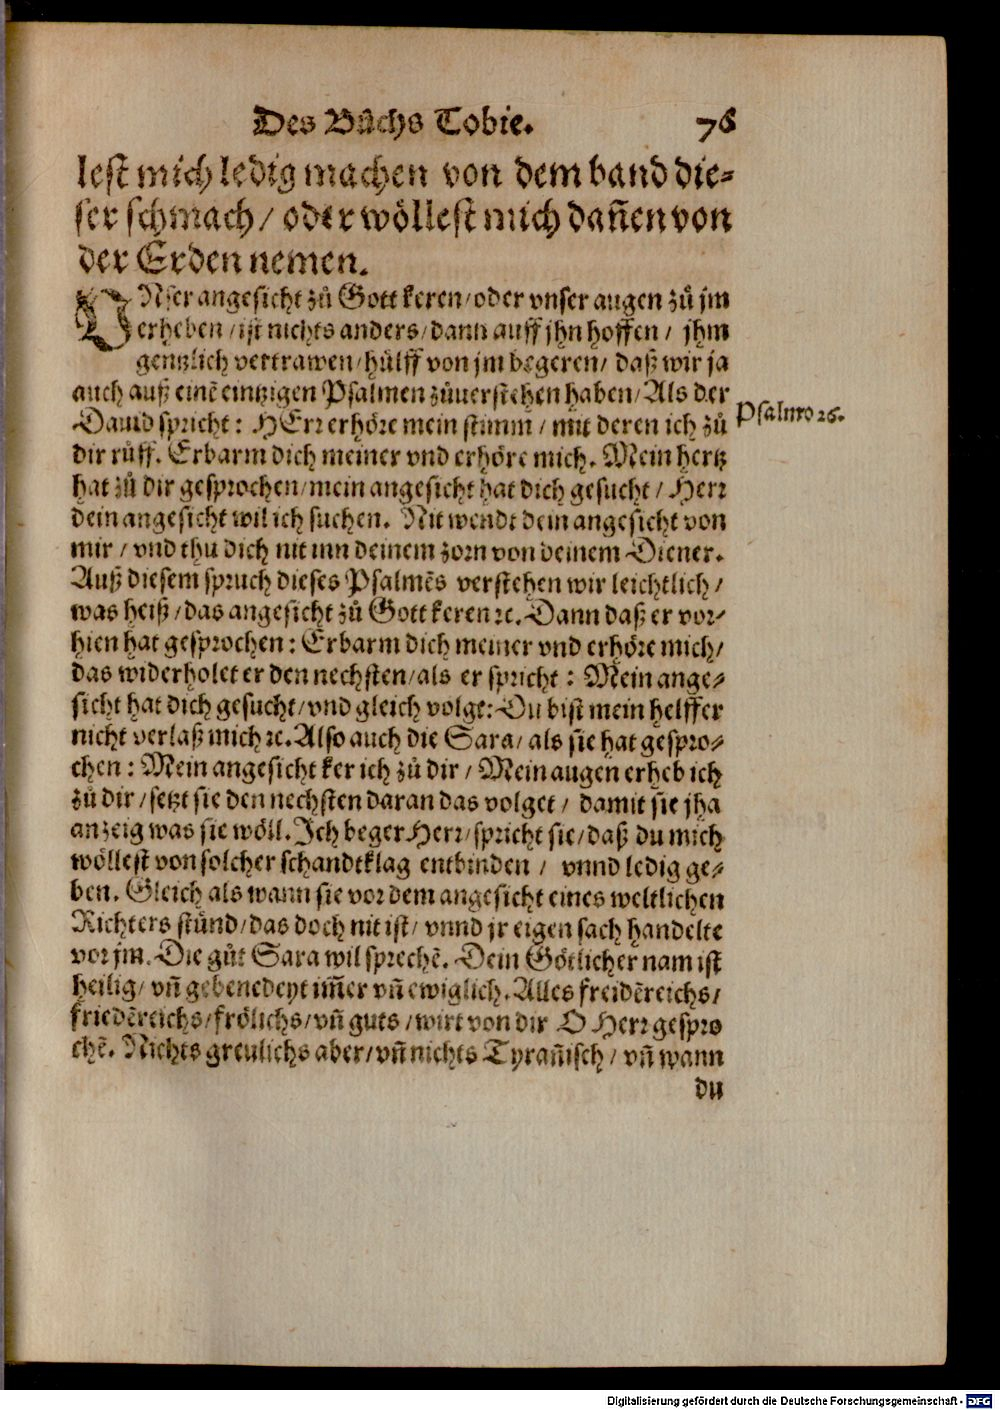 Des Bůchs Tobie. 76
lest mich ledig machen von dem band die⸗
ser schmach/ oder wöllest mich dañen von
der Erden nemen.
VNser angesicht zů Gott keren/oder vnser augen zů jm
erheben/ist nichts anders/dann auff jhn hoffen/ jhm
gentzlich vertrawen/hülff von jm begeren/ daß wir ja
auch auß einẽ eintzigen Psalmen zůuerstehen haben/Als der
Dauid spricht: HErr erhöre mein stimm/ mit deren ich zů
Psalmo 26.
dir rüff. Erbarm dich meiner vnd erhöre mich. Mein hertz
hat zů dir gesprochen/mein angesicht hat dich gesucht/ Herr
dein angesicht wil ich suchen. Nit wendt dein angesicht von
mir/ vnd thu dich nit inn deinem zorn von deinem Diener.
Auß diesem spruch dieses Psalmẽs verstehen wir leichtlich/
was heiß/das angesicht zů Gott keren ꝛc. Dann daß er vor⸗
hien hat gesprochen: Erbarm dich meiner vnd erhöre mich/
das widerholet er den nechsten/als er spricht: Mein ange⸗
sicht hat dich gesucht/vnd gleich volgt: Du bist mein helffer
nicht verlaß mich ꝛc. Also auch die Sara/ als sie hat gespro⸗
chen: Mein angesicht ker ich zů dir/ Mein augen erheb ich
zů dir/setzt sie den nechsten daran das volget/ damit sie jha
anzeig was sie wöll. Ich beger Herr/spricht sie/daß du mich
wöllest von solcher schandtklag entbinden/ vnnd ledig ge⸗
ben. Gleich als wann sie vor dem angesicht eines weltlichen
Richters stünd/das doch nit ist/ vnnd jr eigen sach handelte
vor jm. Die gůt Sara wil sprechẽ. Dein Götlicher nam ist
heilig/ vñ gebenedeyt im̃er vñ ewiglich. Alles freidẽreichs/
friedẽreichs/frölichs/vñ guts/wirt von dir O Herr gespro
chẽ. Nichts greulichs aber/vñ nichts Tyrañisch/ vñ wann
du
Digitalisierung gefördert durch die Deutsche Forschungsgemeinschaft - DFG